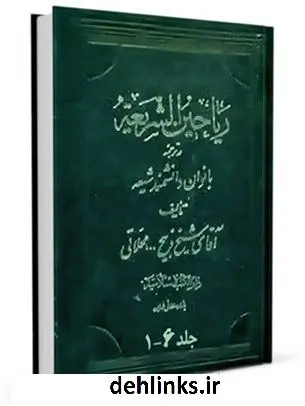 ریاحین الشریعه
در ترجمه
بانوان دانشمند شیعه
تألیف
آقای شیخ ذبیح ... محلاتی
دارالکتب الاسلامیه
جلد ۶-۱
dehlinks.ir